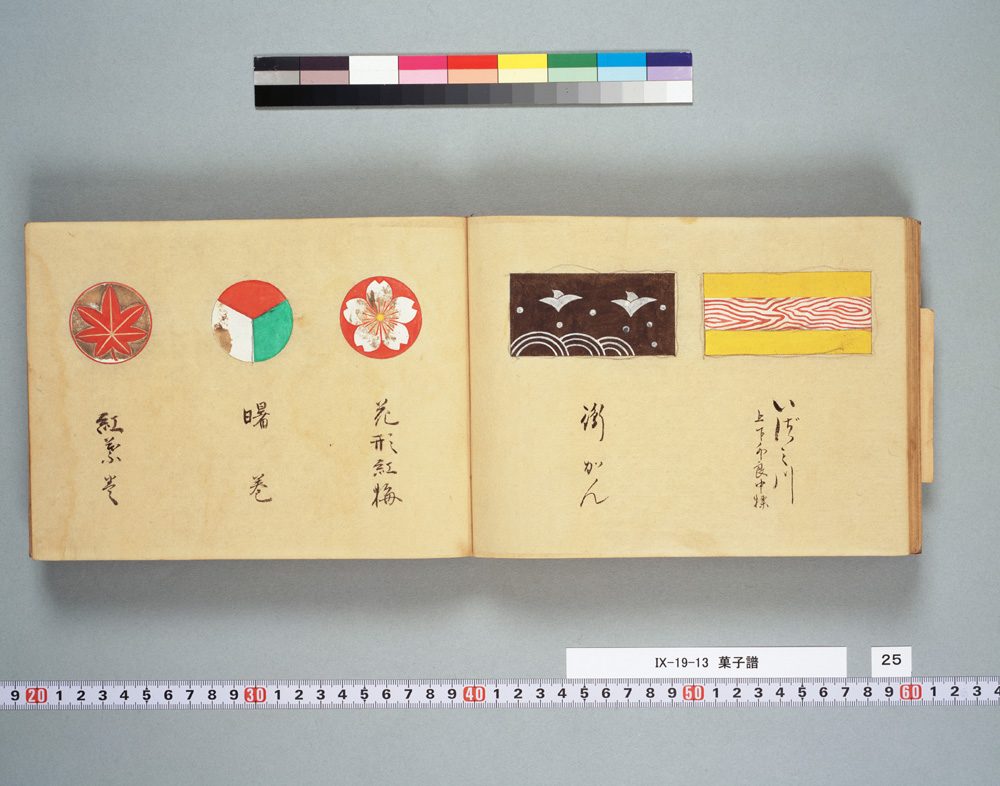 いづみ川
上下外良中煉
鵆がん
花形紅梅
曙巻
紅葉巻
IX-19-13 菓子譜
25
9 20 1 2 3 4 5 6 7 8 9 30 1 2 3 4 5 6 7 8 9 40 1 2 3 4 5 6 7 8 9 50 1 2 3 4 5 6 7 8 9 60 1 2 3 4